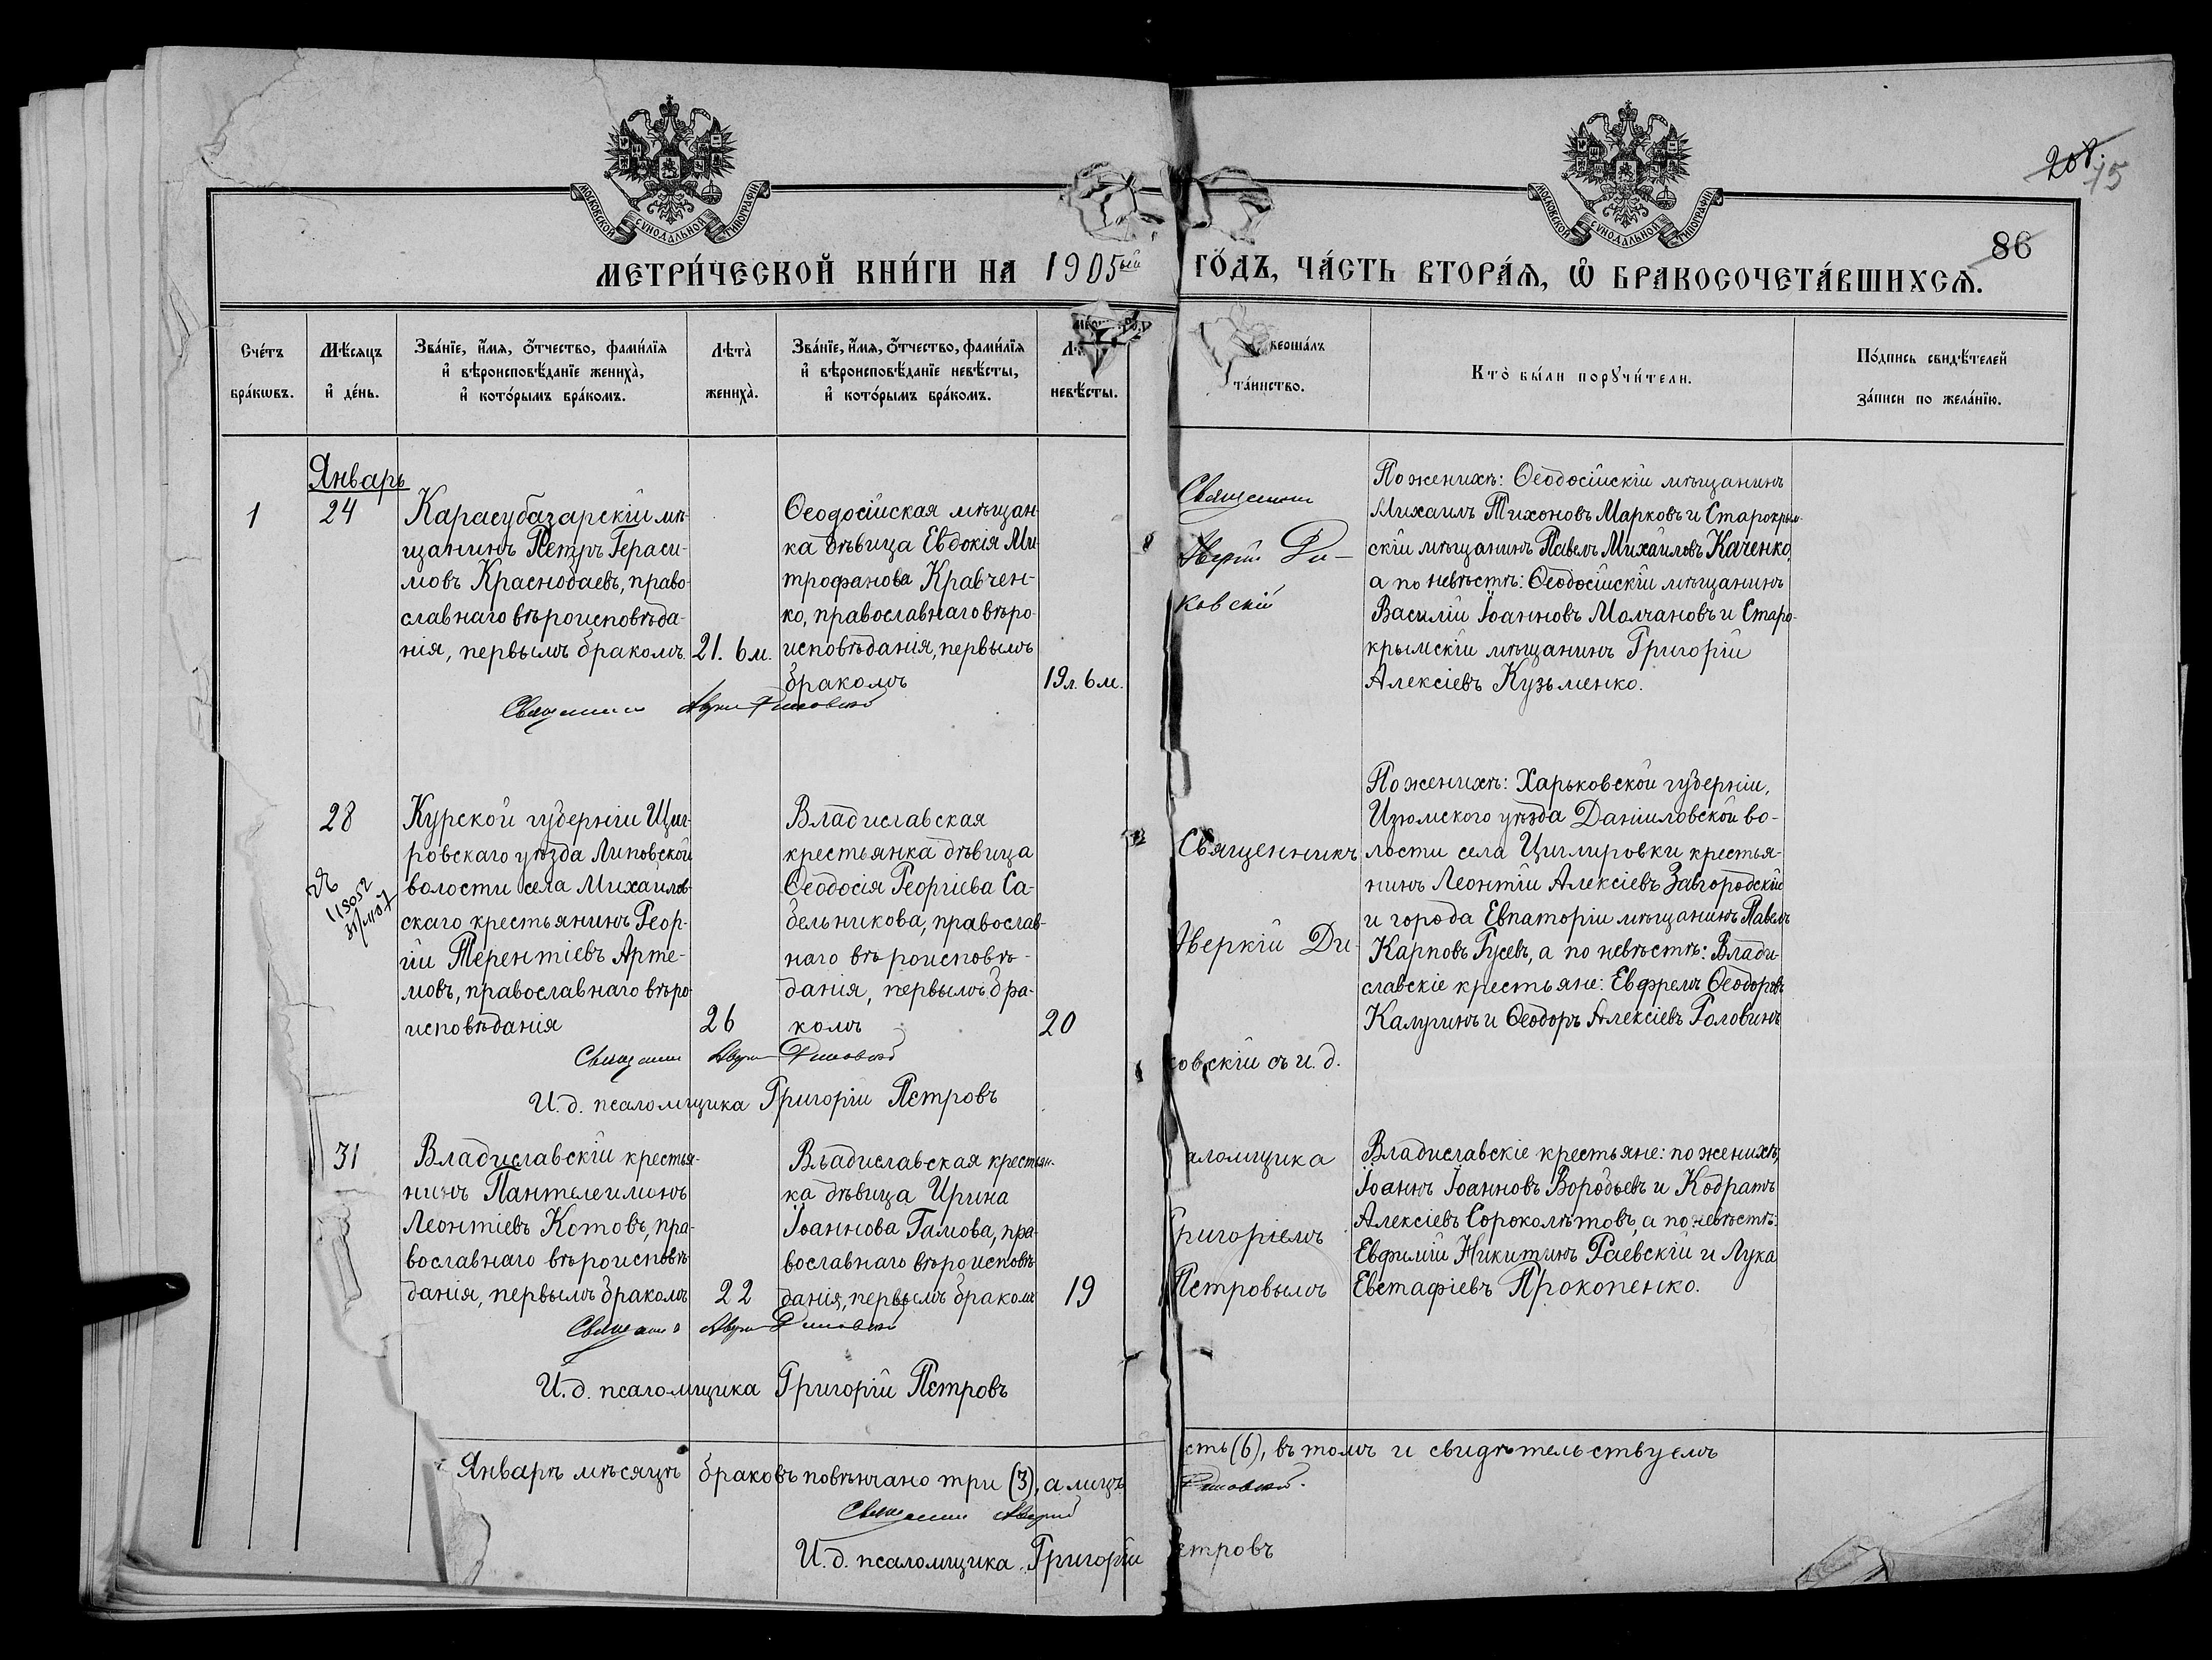 МОСКОВСКОЙ СѴНОДАЛЬНОЙ ТИПОГРАФІИ
МОСКОВСКОЙ СѴНОДАЛЬНОЙ ТИПОГРАФІИ
208.
75
86
МЕТРИ́ЧЕСКОЙ КНИ́ГИ НА 1905ый ГО́ДЪ, ЧА́СТЬ ВТОРА́Ѧ, Ѿ БРАКОСОЧЕТА́ВШИХСѦ.
Сче́тъ
бра́кѡвъ.
Мѣ́сяцъ
и҆ де́нь.
Зва́нїе, и҆́мя, ѻ҆́тчество, фами́лїя
и҆ вѣроисповѣ́данїе жениха̀,
и҆ кото́рымъ бра́комъ.
Лѣта̀
жениха̀.
Зва́нїе, и҆́мя, ѻ҆́тчество, фами́лїя
и҆ вѣроисповѣ́данїе невѣ́сты,
и҆ кото́рымъ бра́комъ.
невѣ́сты.
вершалъ
та́инство.
Кто̀ бы́ли порꙋчи́тели.
По́дпись свидѣ́телей
за́писи по жела́нїю.
Январь
1
24
Карасубазарскій мѣ-
щанинъ Петръ Гераси-
мовъ Краснобаевъ, право-
славнаго вѣроисповѣда-
нія, первымъ бракомъ.
21. 6 м.
Ѳеодосійская мѣщан-
ка дѣвица Евдокія Ми-
трофанова Кравчен-
ко, православнаго вѣро-
исповѣданія, первымъ
бракомъ
19 л. 6 м.
Священникъ
Аверкій Ди-
ковскій
По женихѣ: Ѳеодосійскій мѣщанинъ
Михаилъ Тихоновъ Марковъ и Старокрым-
скій мѣщанинъ Павелъ Михайловъ Каченко,
а по невѣстѣ: Ѳеодосійскій мѣщанинъ
Василій Іоанновъ Молчановъ и Старо-
крымскій мѣщанинъ Григорій
Алексіевъ Кузьменко.
28
118052
Курской губерніи Щиг-
ровскаго уѣзда Липовской
волости села Михайлов-
скаго крестьянинъ Геор-
гій Терентіевъ Арте-
мовъ, православнаго вѣро-
исповѣданія
26
Владиславская
крестьянка дѣвица
Ѳеодосія Георгіева Са-
бельникова, православ-
наго вѣроисповѣ-
данія, первымъ бра-
комъ
20
Священникъ
Аверкій Ди-
ковскій съ и. д.
По женихѣ: Харьковской губерніи,
Изюмскаго уѣзда Даниловской во-
лости села Циглировки крестья-
нинъ Леонтій Алексіевъ Завгородскій
и города Евпаторіи мѣщанинъ Павелъ
Карповъ Гусевъ, а по невѣстѣ: Влади-
славскіе крестьяне: Ефремъ Ѳеодоровъ
Калугинъ и Ѳеодоръ Алексіевъ Головинъ
И. д. псаломщика Григорій Петровъ
31
Владиславскій крестья-
нинъ Пантелеимонъ
Леонтіевъ Котовъ, пра-
вославнаго вѣроисповѣ-
данія, первымъ бракомъ
22
Владиславская крестьян-
ка дѣвица Ирина
Іоаннова Гамова, пра-
вославнаго вѣроисповѣ-
данія, первымъ бракомъ
19
аломщика
Григоріемъ
Петровымъ
Владиславскіе крестьяне: по женихѣ,
Іоаннъ Іоанновъ Воробьевъ и Кодратъ
Алексіевъ Сороколѣтовъ, а по невѣстѣ:
Евфимій Никитинъ Раевскій и Лука
Евстафіевъ Прокопенко.
И. д. псаломщика Григорій Петровъ
Январѣ мѣсяцѣ браковъ повѣнчано три (3), а лицъ
сть (6), въ томъ и свидѣтельствуемъ
И. д. псаломщика Григорій етровъ